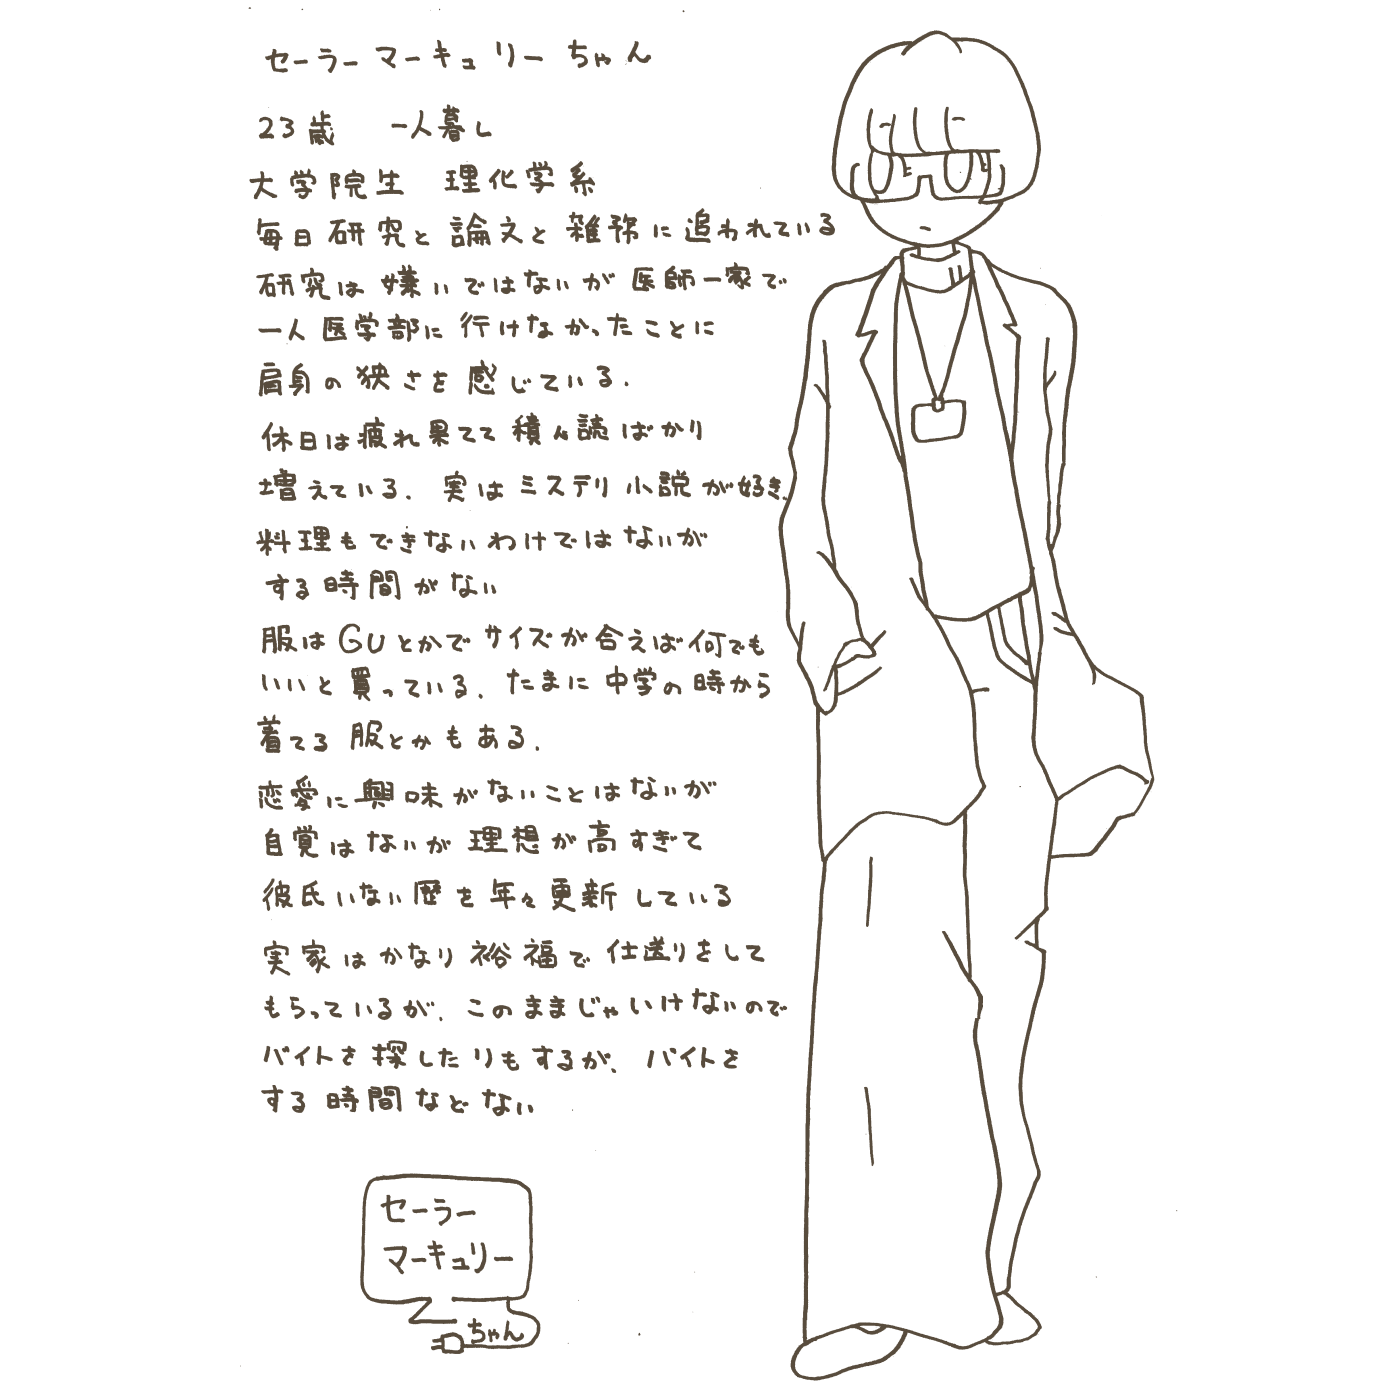 セーラーマーキュリーちゃん
23歳 一人暮し
大学院生 理化学系
毎日研究と論文と雑務に追われている
研究は嫌いではないが医師一家で
一人医学部に行けなかったことに
肩身の狭さを感じている.
休日は疲れ果てて積ん読ばかり
増えている. 実はミステリ小説が好き.
料理もできないわけではないが
する時間がない
服はGUとかでサイズが合えば何でも
いいと買っている. たまに中学の時から
着てる服とかもある.
恋愛に興味がないことはないが
自覚はないが理想が高すぎて
彼氏いない歴を年々更新している
実家はかなり裕福で仕送りをして
もらっているが、このままじゃいけないので
バイトを探したりもするが、バイトを
する時間などない
セーラー
マーキュリー
ちゃん